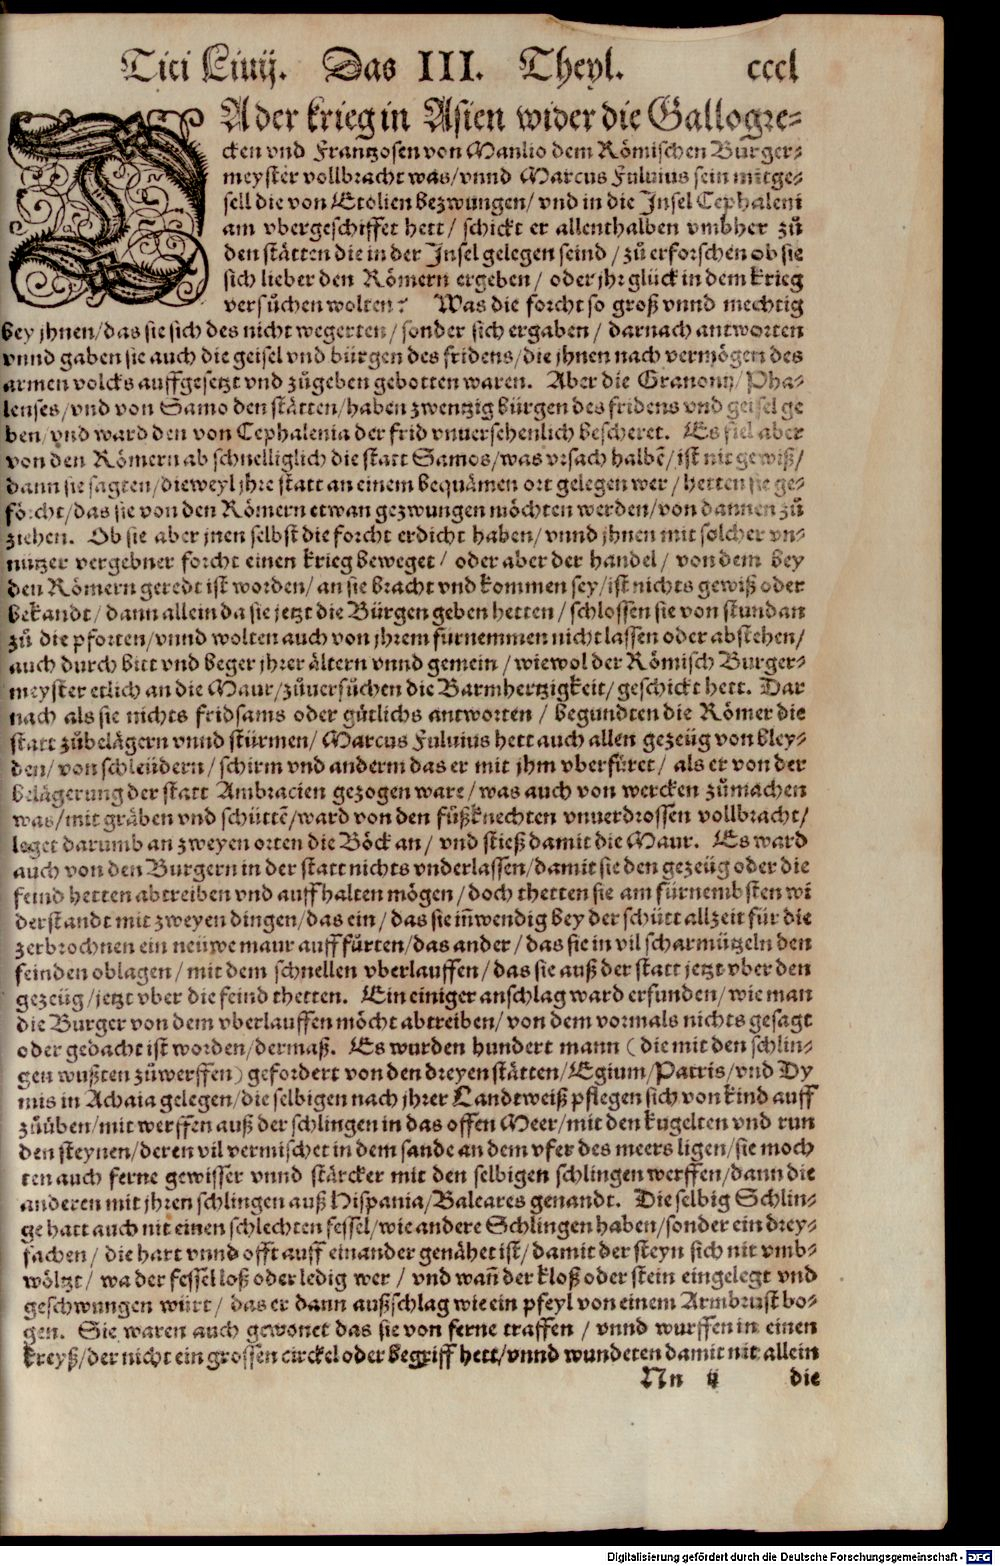 Titi Liuij. Das III. Theyl. cccl
DA der krieg in Asien wider die Gallogre⸗
cken vnd Frantzosen von Manlio dem Römischen Burger⸗
meyster vollbracht was/vnnd Marcus Fuluius sein mitge⸗
sell die von Etolien bezwungen/ vnd in die Jnsel Cephaleni
am vbergeschiffet hett/ schickt er allenthalben vmbher zů
den stätten die in der Jnsel gelegen seind/zů erforschen ob sie
sich lieber den Römern ergeben/ oder jhr glück in dem krieg
versůchen wolten? Was die forcht so groß vnnd mechtig
bey jhnen/das sie sich des nicht wegerten/sonder sich ergaben/ darnach antworten
vnnd gaben sie auch die geisel vnd bürgen des fridens/die jhnen nach vermögen des
armen volcks auffgesetzt vnd zůgeben gebotten waren. Aber die Granonij/Pha⸗
lenses/vnd von Samo den stätten/haben zwentzig bürgen des fridens vnd geisel ge
ben/vnd ward den von Cephalenia der frid vnuersehenlich bescheret. Es fiel aber
von den Römern ab schnelliglich die statt Samos/was vrsach halbẽ/ist nit gewiß/
dann sie sagten/dieweyl jhre statt an einem bequämen ort gelegen wer/hetten sie ge⸗
förcht/das sie von den Römern etwan gezwungen möchten werden/von dannen zů
ziehen. Ob sie aber jnen selbst die forcht erdicht haben/vnnd jhnen mit solcher vn⸗
nützer vergebner forcht einen krieg beweget/ oder aber der handel/ von dem bey
den Römern geredt ist worden/an sie bracht vnd kommen sey/ist nichts gewiß oder
bekandt/dann allein da sie jetzt die Bürgen geben hetten/schlossen sie von stund an
zů die pforten/vnnd wolten auch von jhrem fürnemmen nicht lassen oder abstehen/
auch durch bitt vnd beger jhrer ältern vnnd gemein/wiewol der Römisch Burger⸗
meyster etlich an die Maur/zůuersůchen die Barmhertzigkeit/geschickt hett. Dar
nach als sie nichts fridsams oder gůtlichs antworten/ begundten die Römer die
statt zůbelägern vnnd stürmen/Marcus Fuluius hett auch allen gezeüg von bley⸗
den/von schleüdern/schirm vnd anderm das er mit jhm vberfüret/als er von der
belägerung der statt Ambracien gezogen ware/was auch von wercken zůmachen
was/mit gräben vnd schüttẽ/ward von den fůßknechten vnuerdrossen vollbracht/
leget darumb an zweyen orten die Böck an/ vnd stieß damit die Maur. Es ward
auch von den Burgern in der statt nichts vnderlassen/damit sie den gezeüg oder die
feind hetten abtreiben vnd auffhalten mögen/doch thetten sie am fürnembsten wi
derstandt mit zweyen dingen/das ein/das sie iñwendig bey der schütt allzeit für die
zerbrochnen ein neüwe maur aufffürten/das ander/das sie in vil scharmützeln den
feinden oblagen/mit dem schnellen vberlauffen/das sie auß der statt jetzt vber den
gezeüg/jetzt vber die feind thetten. Ein einiger anschlag ward erfunden/wie man
die Burger von dem vberlauffen möcht abtreiben/von dem vormals nichts gesagt
oder gedacht ist worden/dermaß. Es wurden hundert mann (die mit den schlin⸗
gen wußten zůwerffen) gefordert von den dreyen stätten/Egium/Patris/vnd Dy
mis in Achaia gelegen/die selbigen nach jhrer Landtweiß pflegen sich von kind auff
zůüben/mit werffen auß der schlingen in das offen Meer/mit den kugelten vnd run
den steynen/deren vil vermischet in dem sande an dem vfer des meers ligen/sie moch
ten auch ferne gewisser vnnd stärcker mit den selbigen schlingen werffen/dann die
anderen mit jhren schlingen auß Hispania/Baleares genandt. Die selbig Schlin⸗
ge hatt auch nit einen schlechten fessel/wie andere Schlingen haben/sonder ein drey⸗
fachen/ die hart vnnd offt auff einander genähet ist/damit der steyn sich nit vmb⸗
wöltzt/ wa der fessel loß oder ledig wer/ vnd wañ der kloß oder stein eingelegt vnd
geschwungen würt/ das er dann außschlag wie ein pfeyl von einem Armbrust bo⸗
gen. Sie waren auch gewonet das sie von ferne traffen/ vnnd wurffen in einen
kreyß/der nicht ein grossen circkel oder begriff hett/vnnd wundeten damit nit allein
Nn ij die
Digitalisierung gefördert durch die Deutsche Forschungsgemeinschaft - DFG